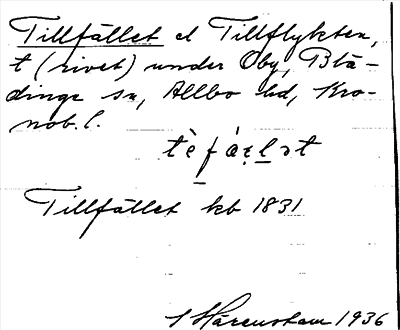 Tillfället el Tillflykten,
t (rivet) under Oby, Blä-
dinge sn, Allbo hd, Kro-
nob. l.
Tillfället kb 1831
Härenstam 1936